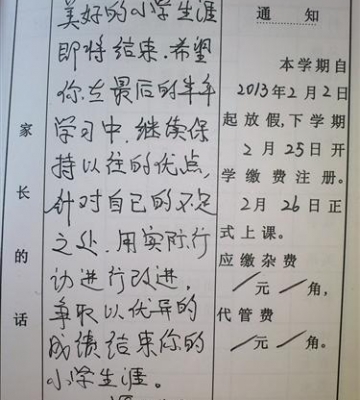 家长的话
美好的小学生涯
即将结束.希望
你在最后的半年
学习中.继续保
持以往的优点,
针对自己的不足
之处.用实际行
动进行改进,
争取以优异的
成绩结束你的
小学生涯。
通知
本学期自
2013年2月2日
起放假,下学期
2月25日开
学缴费注册。
2月26日正
式上课。
应缴杂费
/元/角,
代管费
/元/角。